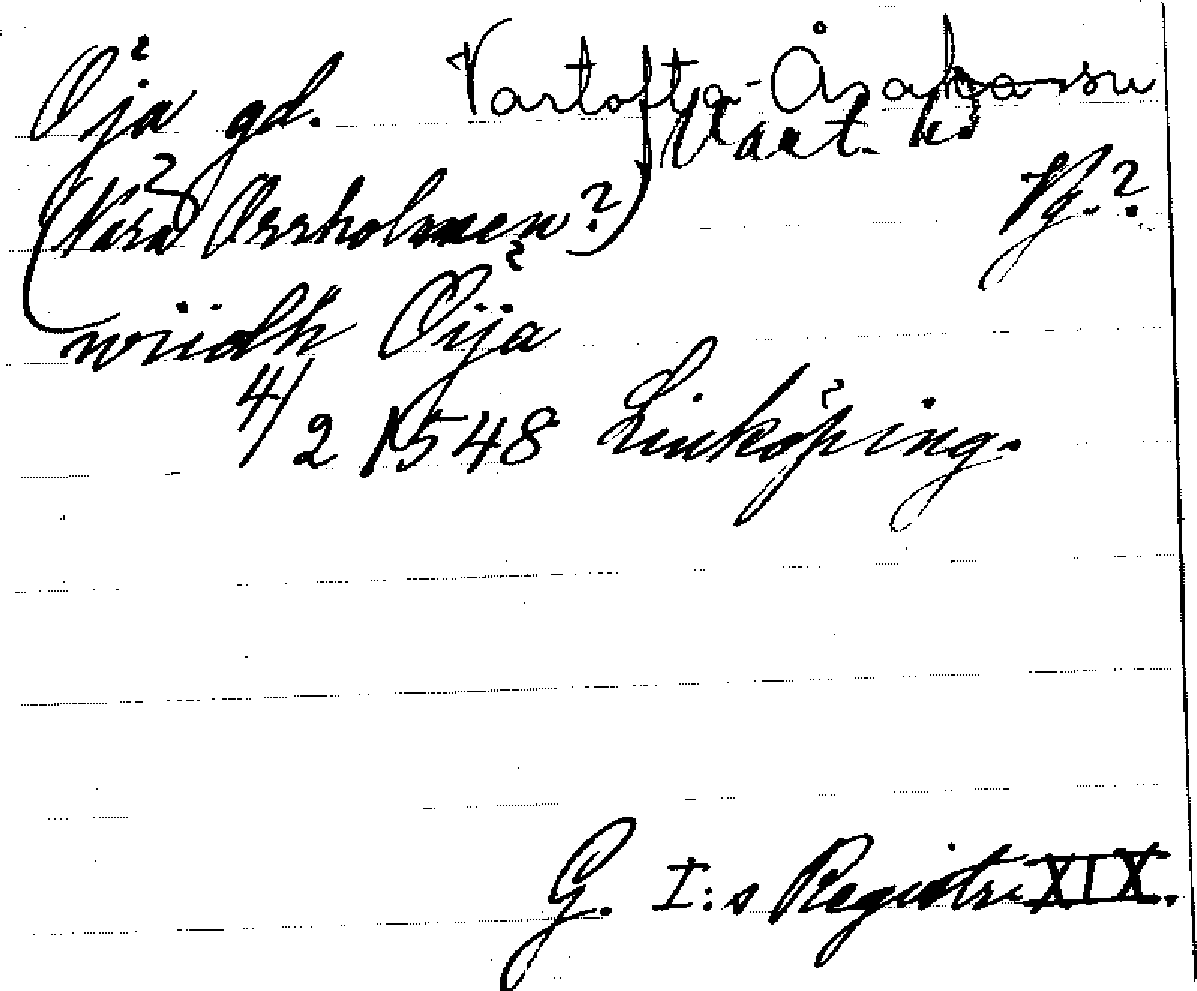 Öja gd. Vartofta-Åsaka sn
Vart. hd
(Nära Orrholmen?) Vg.?
wiidh Öija
4/2 1548 Linköping.
G. I:s Registr. XIX.